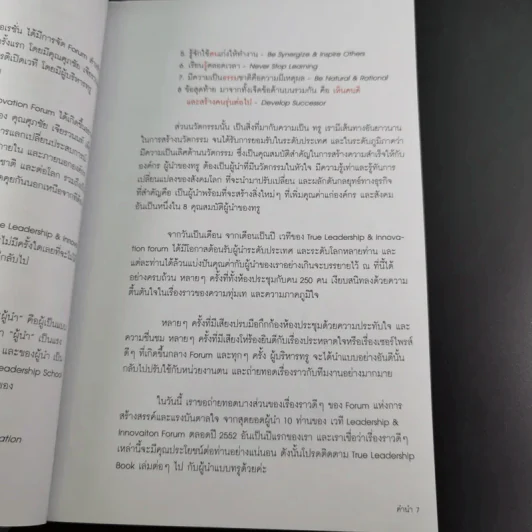 อเรชั่น ได้มีการจัด Forum
novation Forum ได้เกิดขึ้น
e Leadership &
"ผู้นำ" คือผู้เป็นแบบ
"ผู้นำ" เป็นแรง
และของผู้นำ เป็น
eadership School
ของ
ovation
5. รู้จักใช้คนเก่งให้ทำงาน - Be Synergize & Inspire Others
6. เรียนรู้ตลอดเวลา - Never Stop Learning
7. มีความเป็นธรรมชาติคือความมีเหตุผล - Be Natural & Rational
8 ข้อสุดท้าย มาจากทั้งเจ็ดข้อด้านบนรวมกัน คือ เห็นคนดี
และสร้างคนรุ่นต่อไป - Develop Successor
ส่วนนวัตกรรมนั้น เป็นสิ่งที่มากับความเป็น ทรู เรามีเส้นทางอันยาวนาน
ในการสร้างนวัตกรรม จนได้รับการยอมรับในระดับประเทศ และในระดับภูมิภาคว่า
มีความเป็นเลิศด้านนวัตกรรม ซึ่งเป็นคุณสมบัติสำคัญในการสร้างความสำเร็จให้กับ
องค์กร ผู้นำของทรู ต้องเป็นผู้นำที่มีนวัตกรรมในหัวใจ มีความรู้เท่าและรู้ทันการ
เปลี่ยนแปลงของสังคมโลก ที่จะนำมาปรับเปลี่ยน และผลักดันกลยุทธ์ทางธุรกิจ
ที่สำคัญคือ เป็นผู้นำพร้อมที่จะสร้างสิ่งใหม่ๆ ที่เพิ่มคุณค่าแก่องค์กร และสังคม
อันเป็นหนึ่งใน 8 คุณสมบัติผู้นำของทรู
จากวันเป็นเดือน จากเดือนเป็นปี เวทีของ True Leadership & Innova-
tion forum ได้มีโอกาสต้อนรับผู้นำระดับประเทศ และระดับโลกหลายท่าน และ
แต่ละท่านได้ล้วนแบ่งปันคุณค่ากับผู้นำของเราอย่างเกินจะบรรยายไว้ ณ ที่นี้ได้
อย่างครบถ้วน หลายๆ ครั้งที่ทั้งห้องประชุมกับคน 250 คน เงียบสนิทลงด้วยความ
ตื้นตันใจในเรื่องราวของความทุ่มเท และความภาคภูมิใจ
หลายๆ ครั้งที่มีเสียงปรบมือกึกก้องห้องประชุมด้วยความประทับใจ และ
ความชื่นชม หลายๆ ครั้งที่มีเสียงให้ร้องอื้ออึงกับเรื่องประหลาดใจหรือเรื่องเซอร์ไพรส์
ดีๆ ที่เกิดขึ้นกลาง Forum และทุกๆ ครั้ง ผู้บริหารทรู จะได้นำแบบอย่างอันดีนั้น
กลับไปปรับใช้กับหน่วยงานตน และถ่ายทอดเรื่องราวกับทีมงานอย่างมากมาย
ในวันนี้ เราขอถ่ายทอดบางส่วนของเรื่องราวดีๆ ของ Forum แห่งการ
สร้างสรรค์และแรงบันดาลใจ จากสุดยอดผู้นำ 10 ท่านของ เวที Leadership &
Innovaiton Forum ตลอดปี 2552 อันเป็นปีแรกของเรา และเราเชื่อว่าเรื่องราวดีๆ
เหล่านี้จะมีคุณประโยชน์ต่อท่านอย่างแน่นอน ดังนั้นโปรดติดตาม True Leadership
Book เล่มต่อๆ ไป กับผู้นำแบบทรูด้วยค่ะ
คำนำ 7